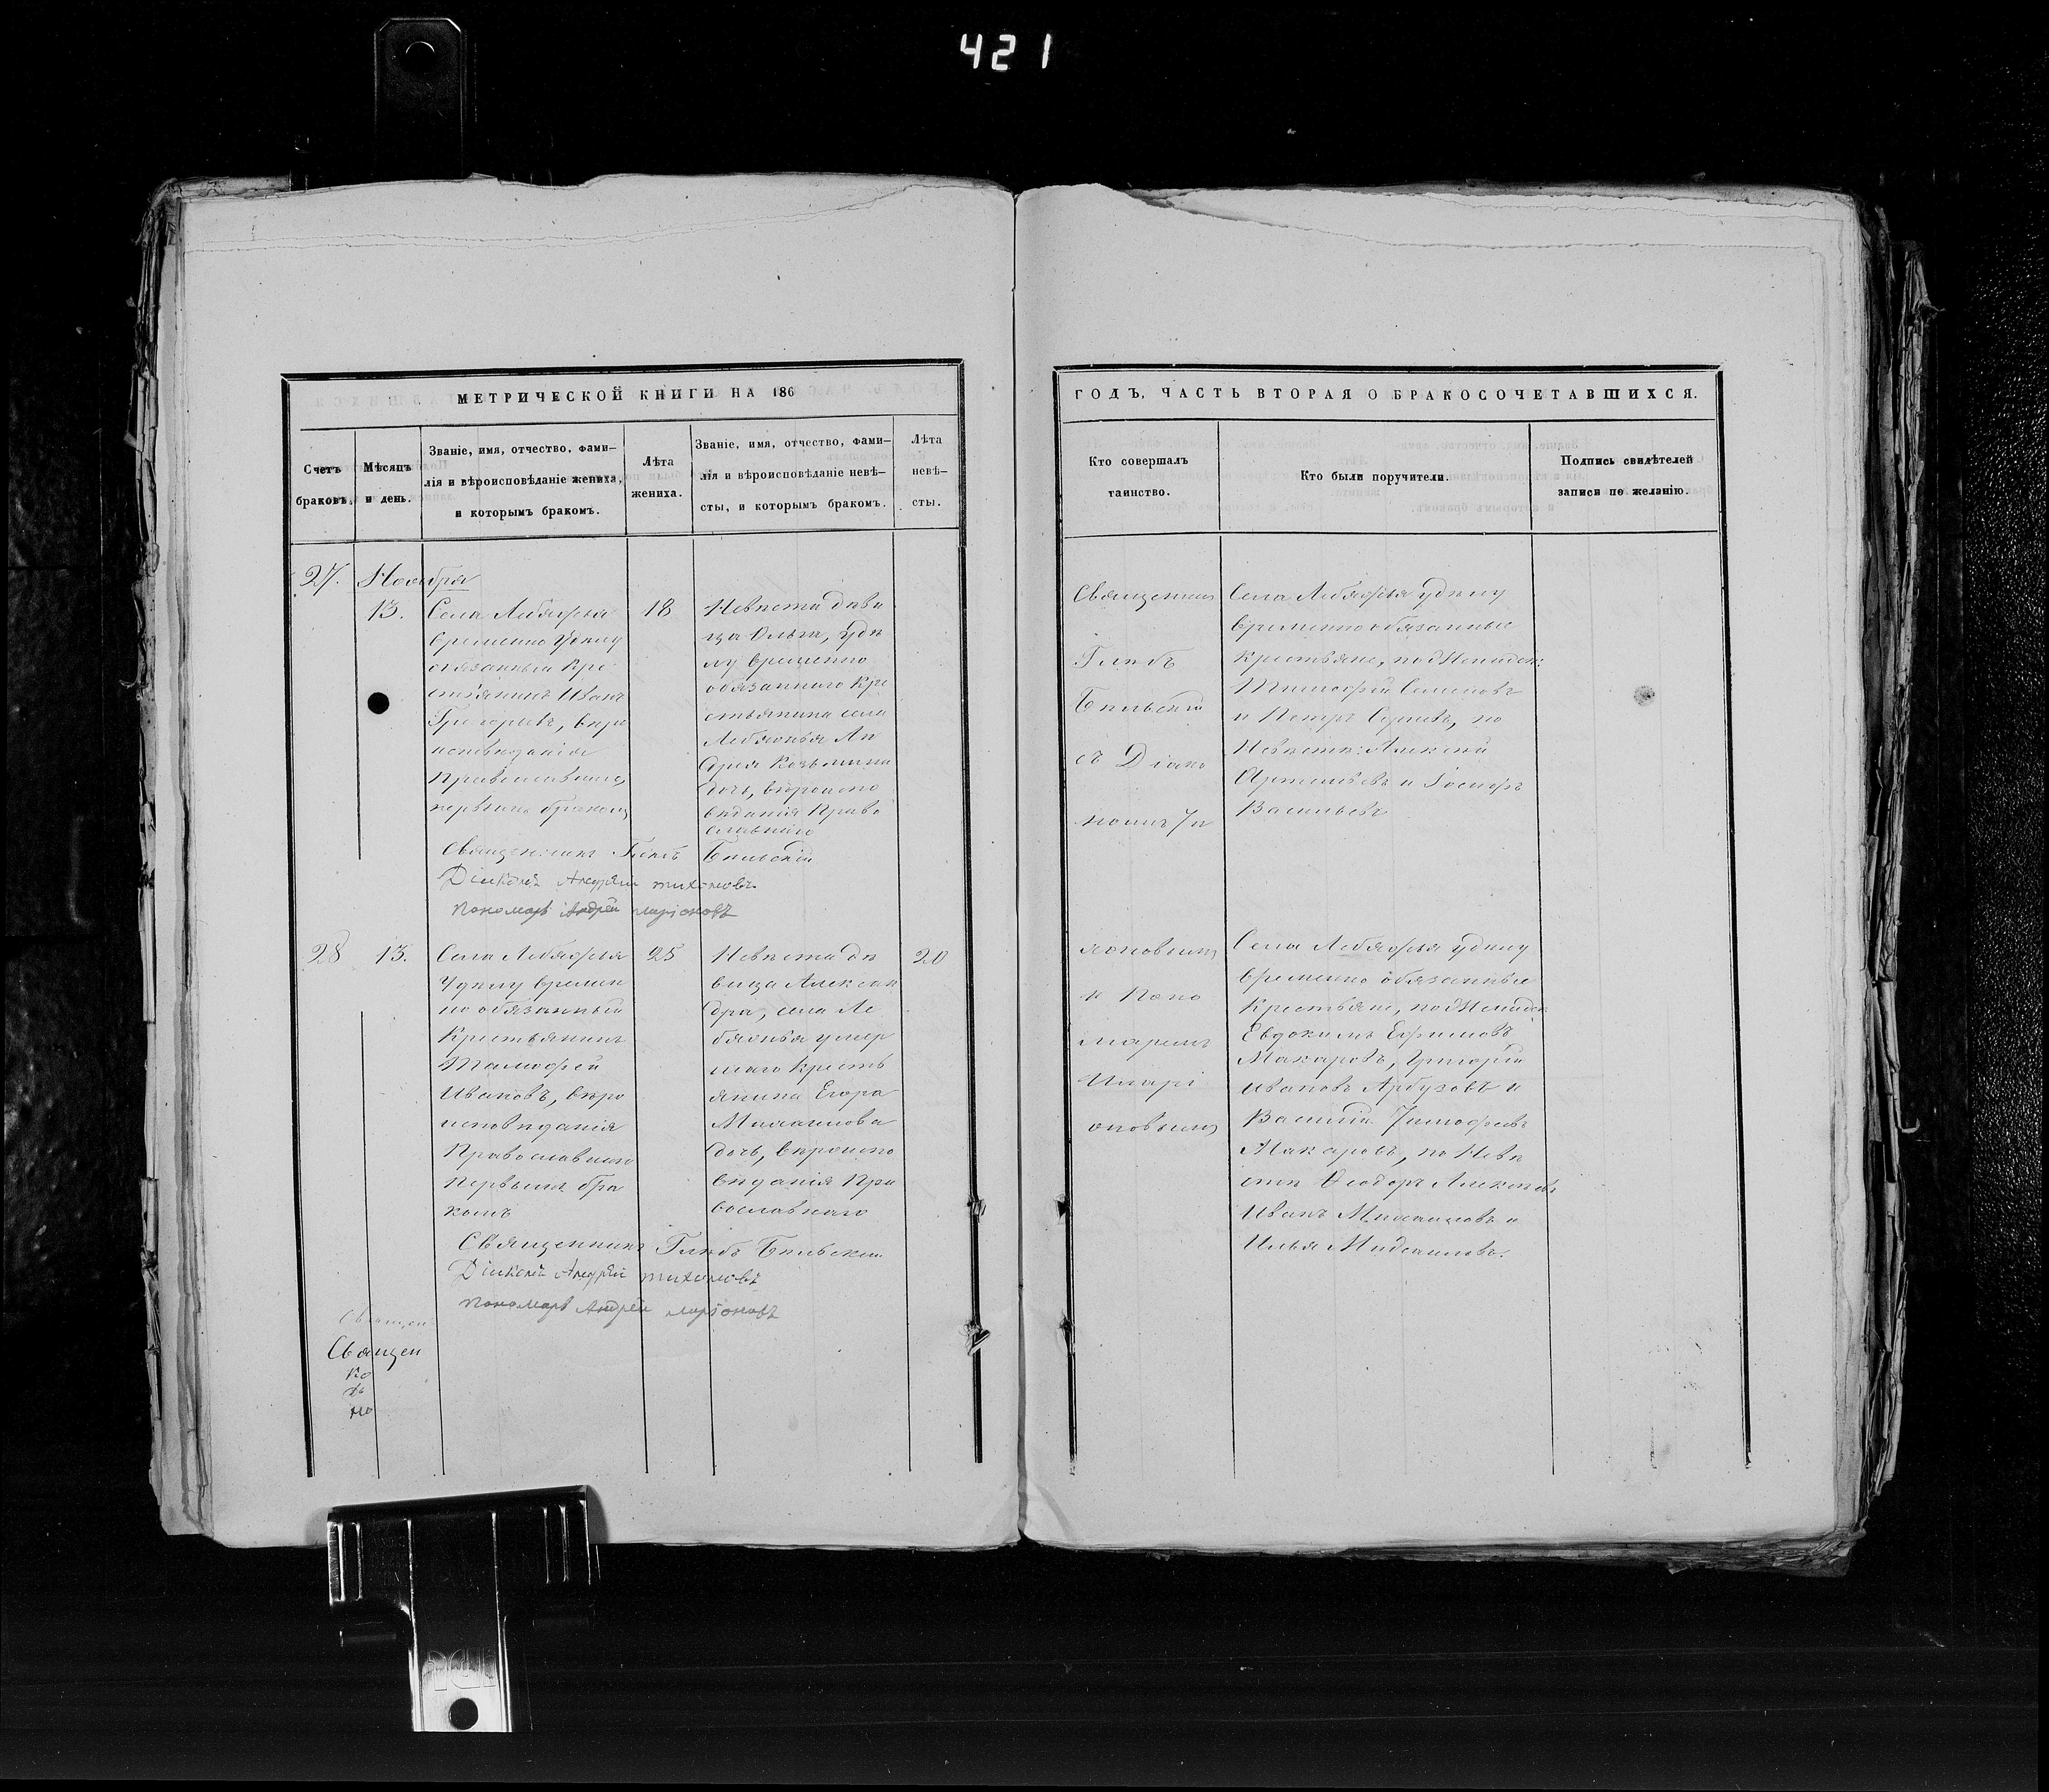 421
МЕТРИЧЕСКОЙ КНИГИ НА 186
Счетъ браковъ.
Мѣсяцъ и день.
Званіе, имя, отчество, фами-
лія и вѣроисповѣданіе жениха,
и которымъ бракомъ.
Лѣта жениха.
Званіе, имя, отчество, фами-
лія и вѣроисповѣданіе невѣ-
сты, и которымъ бракомъ.
Лѣта невѣ-
сты.
27. Ноября
13.
Села Лебяжья
временно удѣлу
обязанный кре
стьянинъ Иванъ
Григорьевъ, вѣро
исповѣданія
Православнаго,
первымъ бракомъ
18
Невѣста дѣви
ца Ольга, удѣ
лу временно
обязаннаго кре
стьянина села
Лебяжья Ан
дрея Козьмина
дочь, вѣроиспо
вѣданія Право
славнаго
Священникъ Глѣбъ Бѣльскій
Діаконъ Андрей
пономарь Андрей Ларіоновъ
28
13.
Села Лебяжья
удѣлу времен
но обязанный
Крестьянинъ
Тимофей
Ивановъ, вѣро
исповѣданія
Православнаго
первымъ бра
комъ
25
Невѣста дѣ
вица Алексан
дра, села Ле
бяжья умер
шаго кресть
янина Егора
дочь, вѣроиспо
вѣданія Пра
вославнаго
20
Священникъ Глѣбъ Бѣльскій
Діаконъ Андрей
пономарь Андрей Ларіоновъ
Священ
Священ
но
ГОДЪ, ЧАСТЬ ВТОРАЯ О БРАКОСОЧЕТАВШИХСЯ.
Кто совершалъ
таинство.
Кто были поручители.
Подпись свидѣтелей
записи по желанію.
Священникъ
Глѣбъ
Бѣльскій
съ Діако
номъ
Села Лебяжья удѣлу
временно обязанные
крестьяне, по Женихѣ:
Тимофей Семеновъ
и Петръ, по
Невѣстѣ: Алексѣй
Артемьевъ и Іосифъ
Васильевъ
и Поно
маремъ
Иларі
оновымъ
Села Лебяжья удѣлу
временно обязанные
Крестьяне, по Женихѣ
Евдокимъ Ефимовъ
Макаровъ, Григорій
Ивановъ Арбузовъ и
Василій Тимофеевъ
Макаровъ, по Невѣ
стѣ Ѳеодоръ Алексѣевъ
Иванъ
Илья